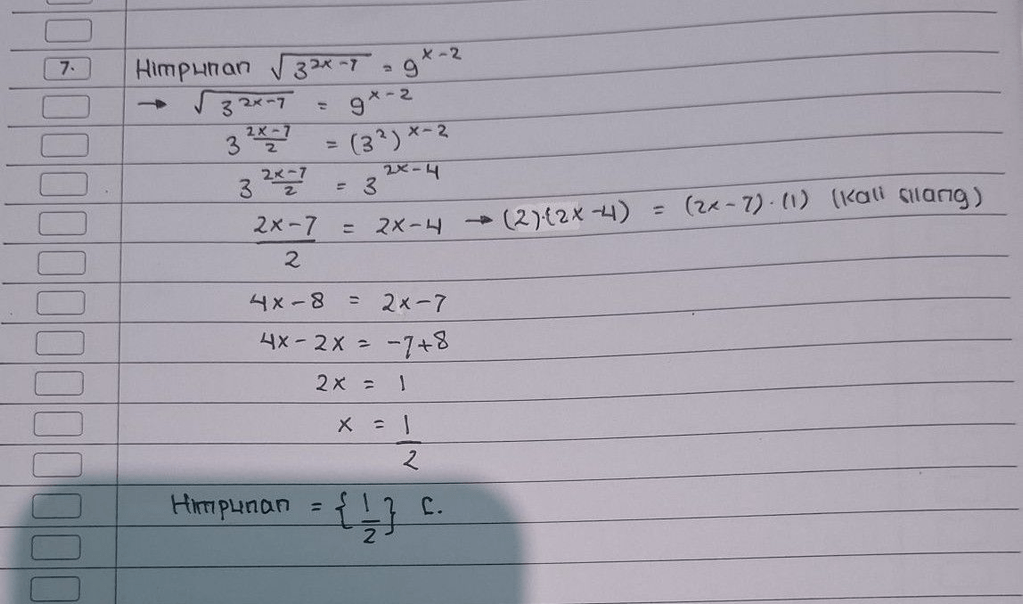 7. Himpunan √3^(2x-7) = 9^(x-2)
→ √3^(2x-7) = 9^(x-2)
3^((2x-7)/2) = (3²)^(x-2)
3^((2x-7)/2) = 3^(2x-4)
(2x-7)/2 = 2x-4 → (2)·(2x-4) = (2x-7)·(1) (Kali silang)
4x-8 = 2x-7
4x-2x = -7+8
2x = 1
x = 1/2
Himpunan = {1/2} C.